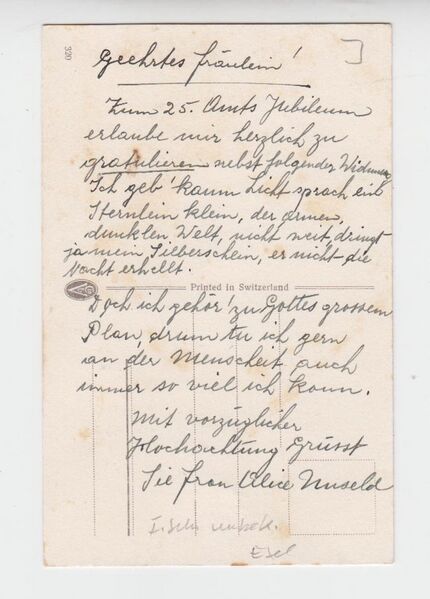 320
Geehrtes Fräulein!
Zum 25. Amts Jubileum
erlaube mir herzlich zu
gratulieren nebst folgender Widmung
Ich geb' kaum Licht sprach ein
Sternlein klein, der armen
dunklen Welt, nicht weit, dringt
ja mein Silberschein, er nicht die
Nacht erhellt.
Printed in Switzerland
Doch ich gehör' zu Gottes grossem
Plan, drum tu ich gern
an der Menscheit auch
immer so viel ich kann.
Mit vorzüglicher
Hochachtung Grüsst
Sie Frau Alice Unseld
Esel